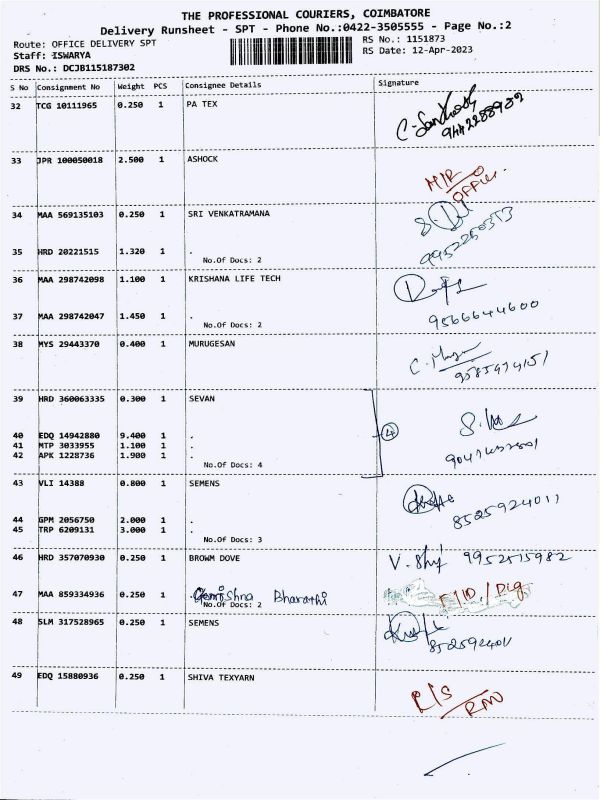 THE PROFESSIONAL COURIERS, COIMBATORE
Delivery Runsheet - SPT - Phone No.:0422-3505555 - Page No.:2
Route: OFFICE DELIVERY SPT
RS No.: 1151873
Staff: ISWARYA
RS Date: 12-Apr-2023
DRS No.: DCJB115187302
S No Consignment No Weight PCS Consignee Details Signature
32 TCG 10111965 0.250 1 PA TEX
33 JPR 100050018 2.500 1 ASHOCK
OFFICE
34 MAA 569135103 0.250 1 SRI VENKATRAMANA
35 HRD 20221515 1.320 1 .
No.Of Docs: 2
36 MAA 298742098 1.100 1 KRISHANA LIFE TECH
9566644600
37 MAA 298742047 1.450 1 .
No.Of Docs: 2
38 MYS 29443370 0.400 1 MURUGESAN
39 HRD 360063335 0.300 1 SEVAN
4
40 EDQ 14942880 9.400 1 .
41 MTP 3033955 1.100 1 .
42 APK 1228736 1.900 1 .
No.Of Docs: 4
43 VLI 14388 0.800 1 SEMENS
8525924011
44 GPM 2056750 2.000 1 .
45 TRP 6209131 3.000 1 .
No.Of Docs: 3
46 HRD 357070930 0.250 1 BROWM DOVE
9952515982
47 MAA 859334936 0.250 1 Bharathi
No.Of Docs: 2
48 SLM 317528965 0.250 1 SEMENS
49 EDQ 15880936 0.250 1 SHIVA TEXYARN